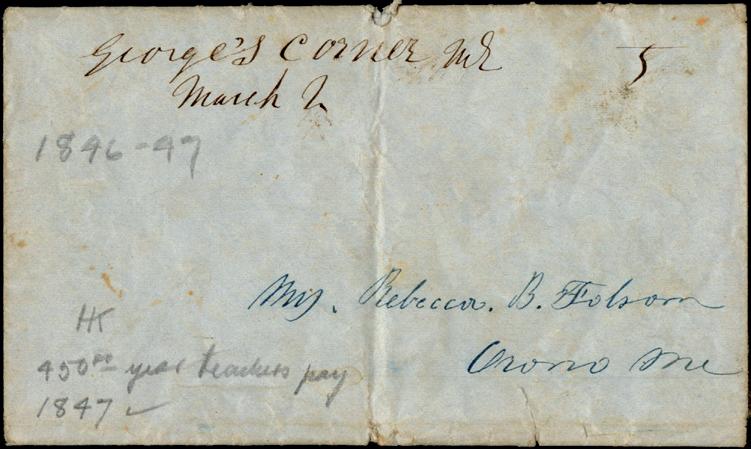 George's Corner Me 5
March 2
1846-47
Ms. Rebecca. B. Folsom
Orono Me
HK
450⁰⁰ year teachers pay
1847